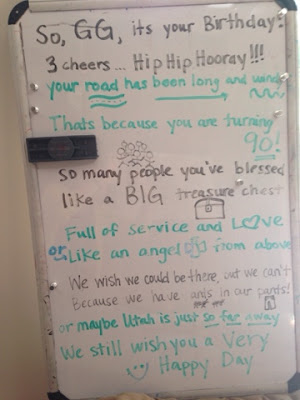 So, GG, its your Birthday!
3 cheers... Hip Hip Hooray!!!
your road has been long and windy
Thats because you are turning
90!
so many people you've blessed
like a BIG treasure chest
Full of service and LOVE
or Like an angel from above
We wish we could be there, but we can't
Because we have ants in our pants!
or maybe Utah is just so far away
We still wish you a very
Happy Day